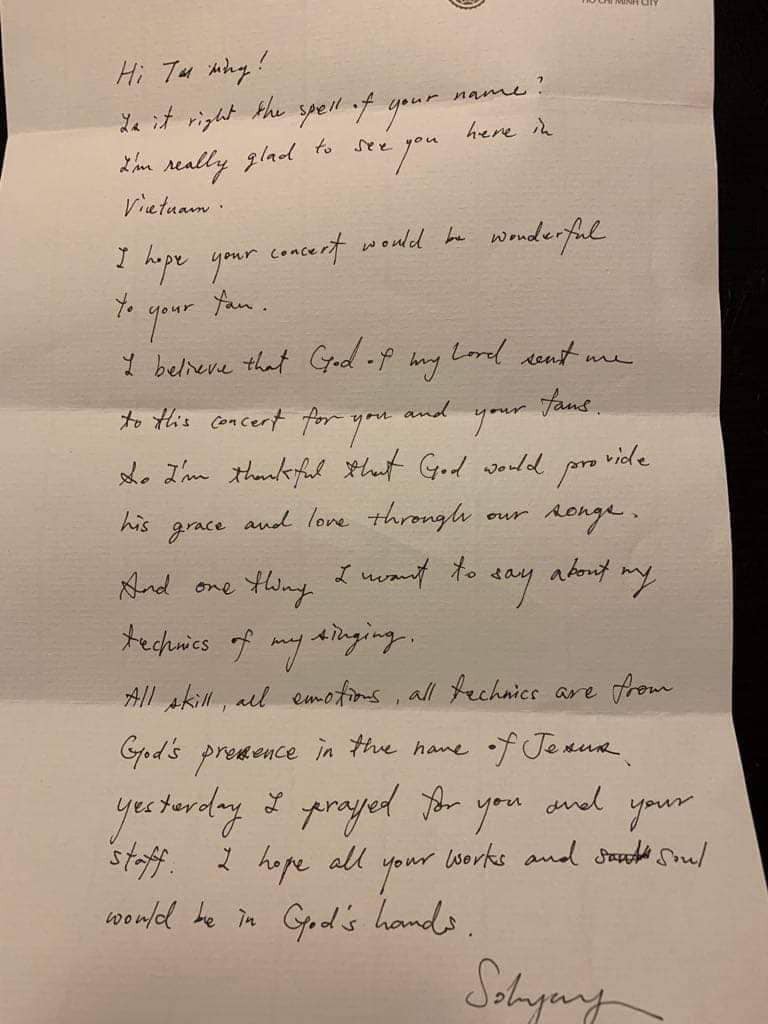 HO CHI MINH CITY
Hi
Is it right the spell of your name?
I'm really glad to see you here in
Vietnam.
I hope your concert would be wonderful
to your fan.
I believe that God of my Lord sent me
to this concert for you and your fans.
So I'm thankful that God would provide
his grace and love through our songs.
And one thing I want to say about my
technics of my singing.
All skill, all emotions, all technics are from
God's presence in the name of Jesus.
yesterday I prayed for you and your
staff. I hope all your works and soul
would be in God's hands.
Sohyang